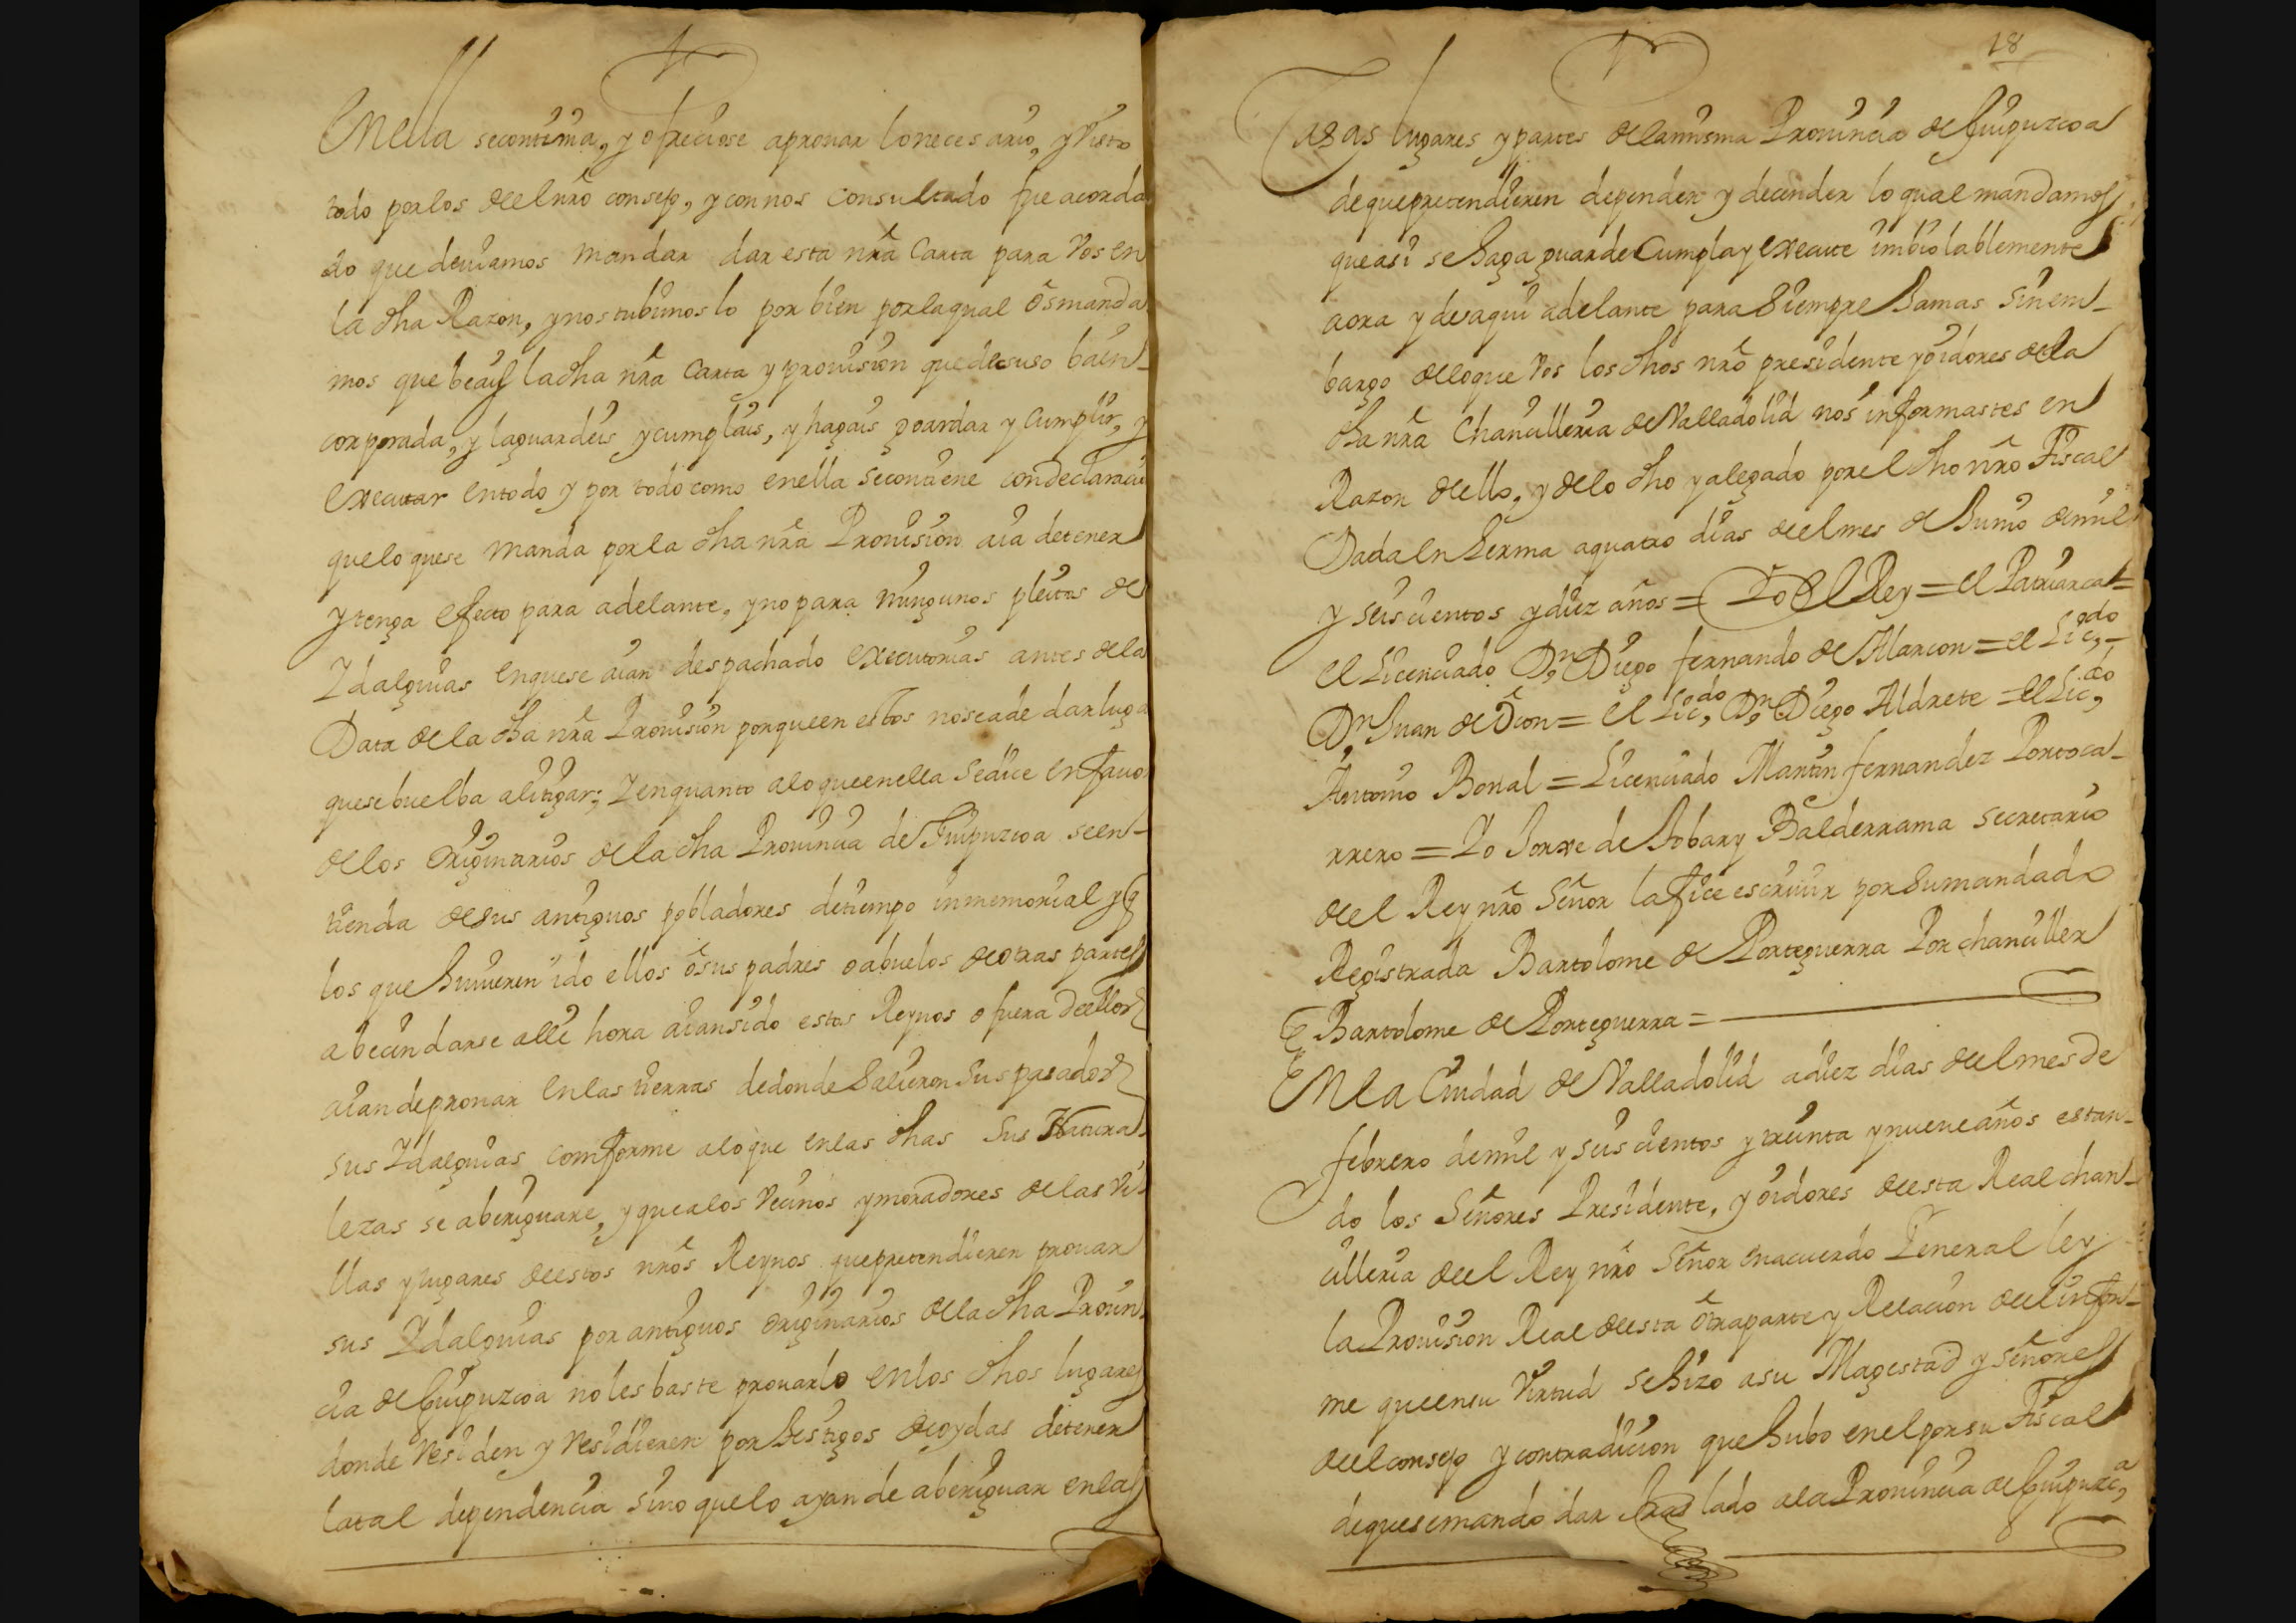 Enella secontinia, y ofreciose aprovar lo neces ario, y Visto
todo por los deel nrô consejo, y con nos consultado fue acorda
do que deuiamos mandar dar esta nrâ Carta para Vos en
la dha Razon, y nos tubimos lo por bien por la qual ôs manda
mos que beais la dha nrâ Carta y prouision que de suso ba in-
corporada, y la guardeis y cumplais, y hagais guardar y Cumplir, y
executar en todo y por todo como en ella se contiene con declaraci
que lo que se manda por la dha nrâ Prouision aia de tener
y tenga efecto para adelante, y no para ningunos pleitos de
Ydalguias en que se aian despachado executorias antes de la
Data de la dha nrâ Prouision por que en estos no se a de dar luga
que se buelba a litigar; Y en quanto a lo que en ella se dice en fauor
de los Originarios de la dha Prouincia de Guipuzcoa se en-
tienda de sus antiguos pobladores de tiempo inmemorial y q
los que huuieren ido ellos ô sus padres o abuelos de otras partes
a becindarse alli hora aian sido estos Reynos o fuera deellos
aian de prouar en las tierras de donde Salieron Sus pasados
sus Ydalguias comforme a lo que en las dhas Sus Natura
lezas se aberiguare, y que a los Vecinos y moradores de las Vi-
llas y lugares deestos nrôs Reynos que pretendieren prouar
sus Ydalguias por antiguos originarios de la dha Prouin
cia de Guipuzcoa no les baste prouarlo en los dhos lugares
donde Residen y Residieren por Testigos de oydas de tener
la tal dependencia Sino que lo ayan de aberiguar en las
18
Casas lugares y partes de la misma Prouincia de Guipuzcoa
de que pretendieren depender y decender lo qual mandamos
que asi se haga guarde Cumpla y execute imbiolablemente
aora y de aqui adelante para Siempre Jamas Sin em-
bargo de lo que Vos los dhos nrô presidente y oidores de la
dha nrâ Chancilleria de Valladolid nos informastes en
Razon dello, y de lo dho y alegado por el dho nrô Fiscal
Dada en Lerma a quatro dias deel mes de Junio de mil
y seis cientos y diez años = Yo El Rey = el Patriarca =
el Licenciado Dn Diego fernando de Alarcon = el Licdo -
Dn Juan de Ocon = el Licdo Dn Diego Aldrete = el Licdo
Antonio Bonal = Licenciado Martin fernandez Portoca-
rrero = Yo Jorxe de Tobar y Balderrama secretario
deel Rey nrô Señor la fice escriuir por Su mandado
Registrada Bartolome de Porteguerra Por chanciller
Bartolome de Porteguerra =
En la Ciudad de Valladolid a diez dias deel mes de
febrero de mil y seis cientos y treinta y nueue años estan-
do los Señores Presidente, y oidores deesta Real chan-
cilleria deel Rey nrô Señor en acuerdo General ley
la Prouision Real deesta ôtra parte y Relacion deel infor-
me que en su Virtud se hizo a su Magestad y Señores
deel consejo y contradicion que hubo en el por su Fiscal
de que se mando dar traslado a la Prouincia de Guipuzca